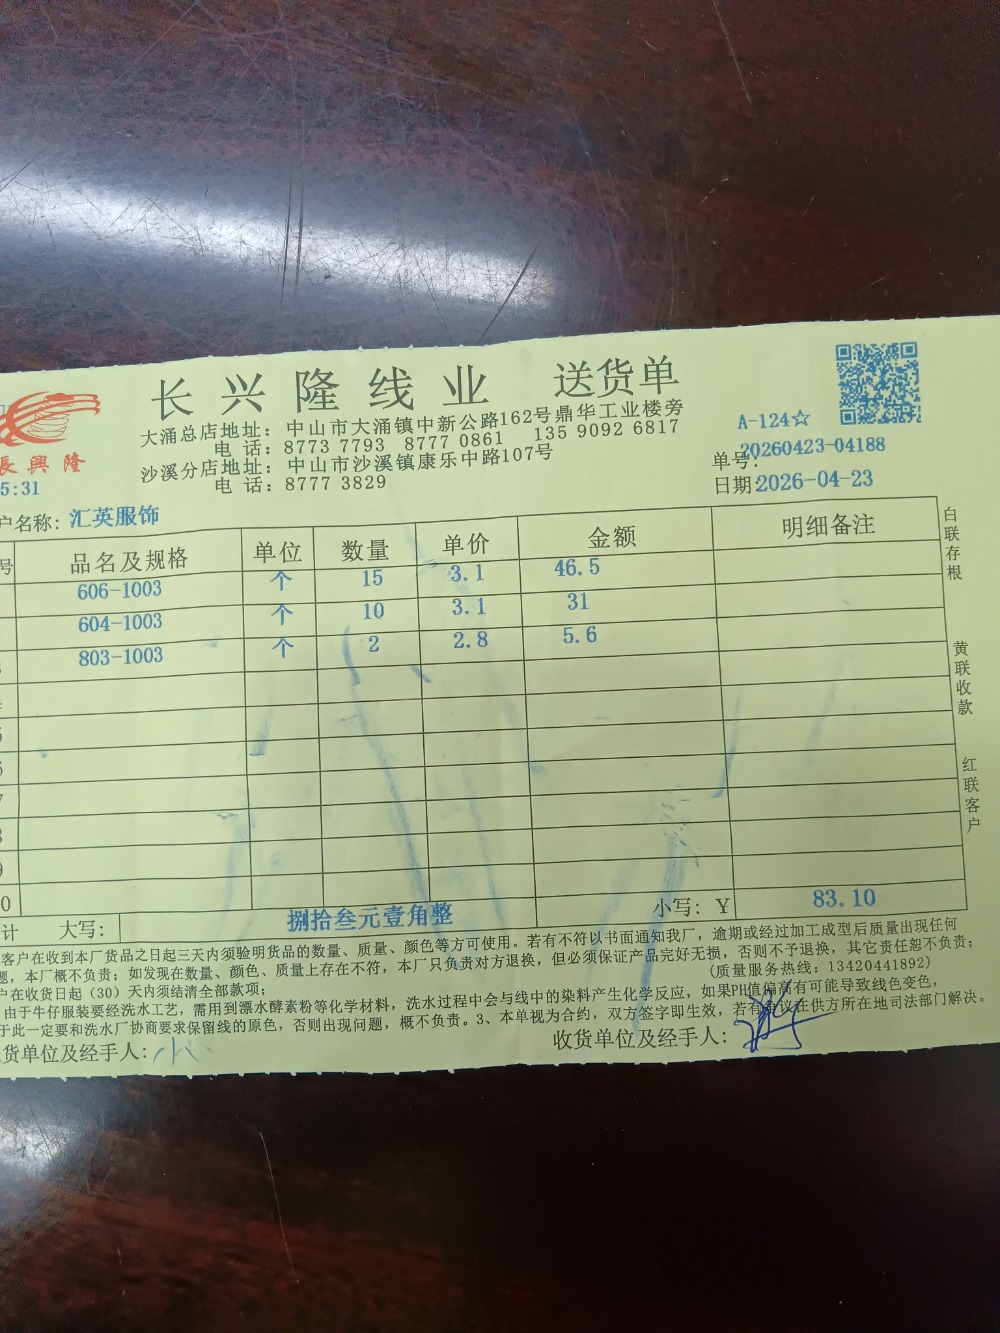 长兴隆线业 送货单
長興隆
大涌总店地址：中山市大涌镇中新公路162号鼎华工业楼旁
电 话：8773 7793 8777 0861 135 9092 6817
沙溪分店地址：中山市沙溪镇康乐中路107号
电 话：8777 3829
A-124☆
单号：20260423-04188
日期：2026-04-23
5:31
户名称：汇英服饰
号 品名及规格 单位 数量 单价 金额 明细备注
606-1003 个 15 3.1 46.5
604-1003 个 10 3.1 31
803-1003 个 2 2.8 5.6
计 大写：捌拾叁元壹角整 小写：Y 83.10
白联存根
黄联收款
红联客户
客户在收到本厂货品之日起三天内须验明货品的数量、质量、颜色等方可使用。若有不符以书面通知我厂，逾期或经过加工成型后质量出现任何
题，本厂概不负责；如发现在数量、颜色、质量上存在不符，本厂只负责对方退换，但必须保证产品完好无损，否则不予退换，其它责任恕不负责；
户在收货日起（30）天内须结清全部款项； （质量服务热线：13420441892）
由于牛仔服装要经洗水工艺，需用到漂水酵素粉等化学材料，洗水过程中会与线中的染料产生化学反应，如果PH值偏高有可能导致线色变色，
于此一定要和洗水厂协商要求保留线的原色，否则出现问题，概不负责。3、本单视为合约，双方签字即生效，若有争议在供方所在地司法部门解决。
货单位及经手人： 收货单位及经手人：